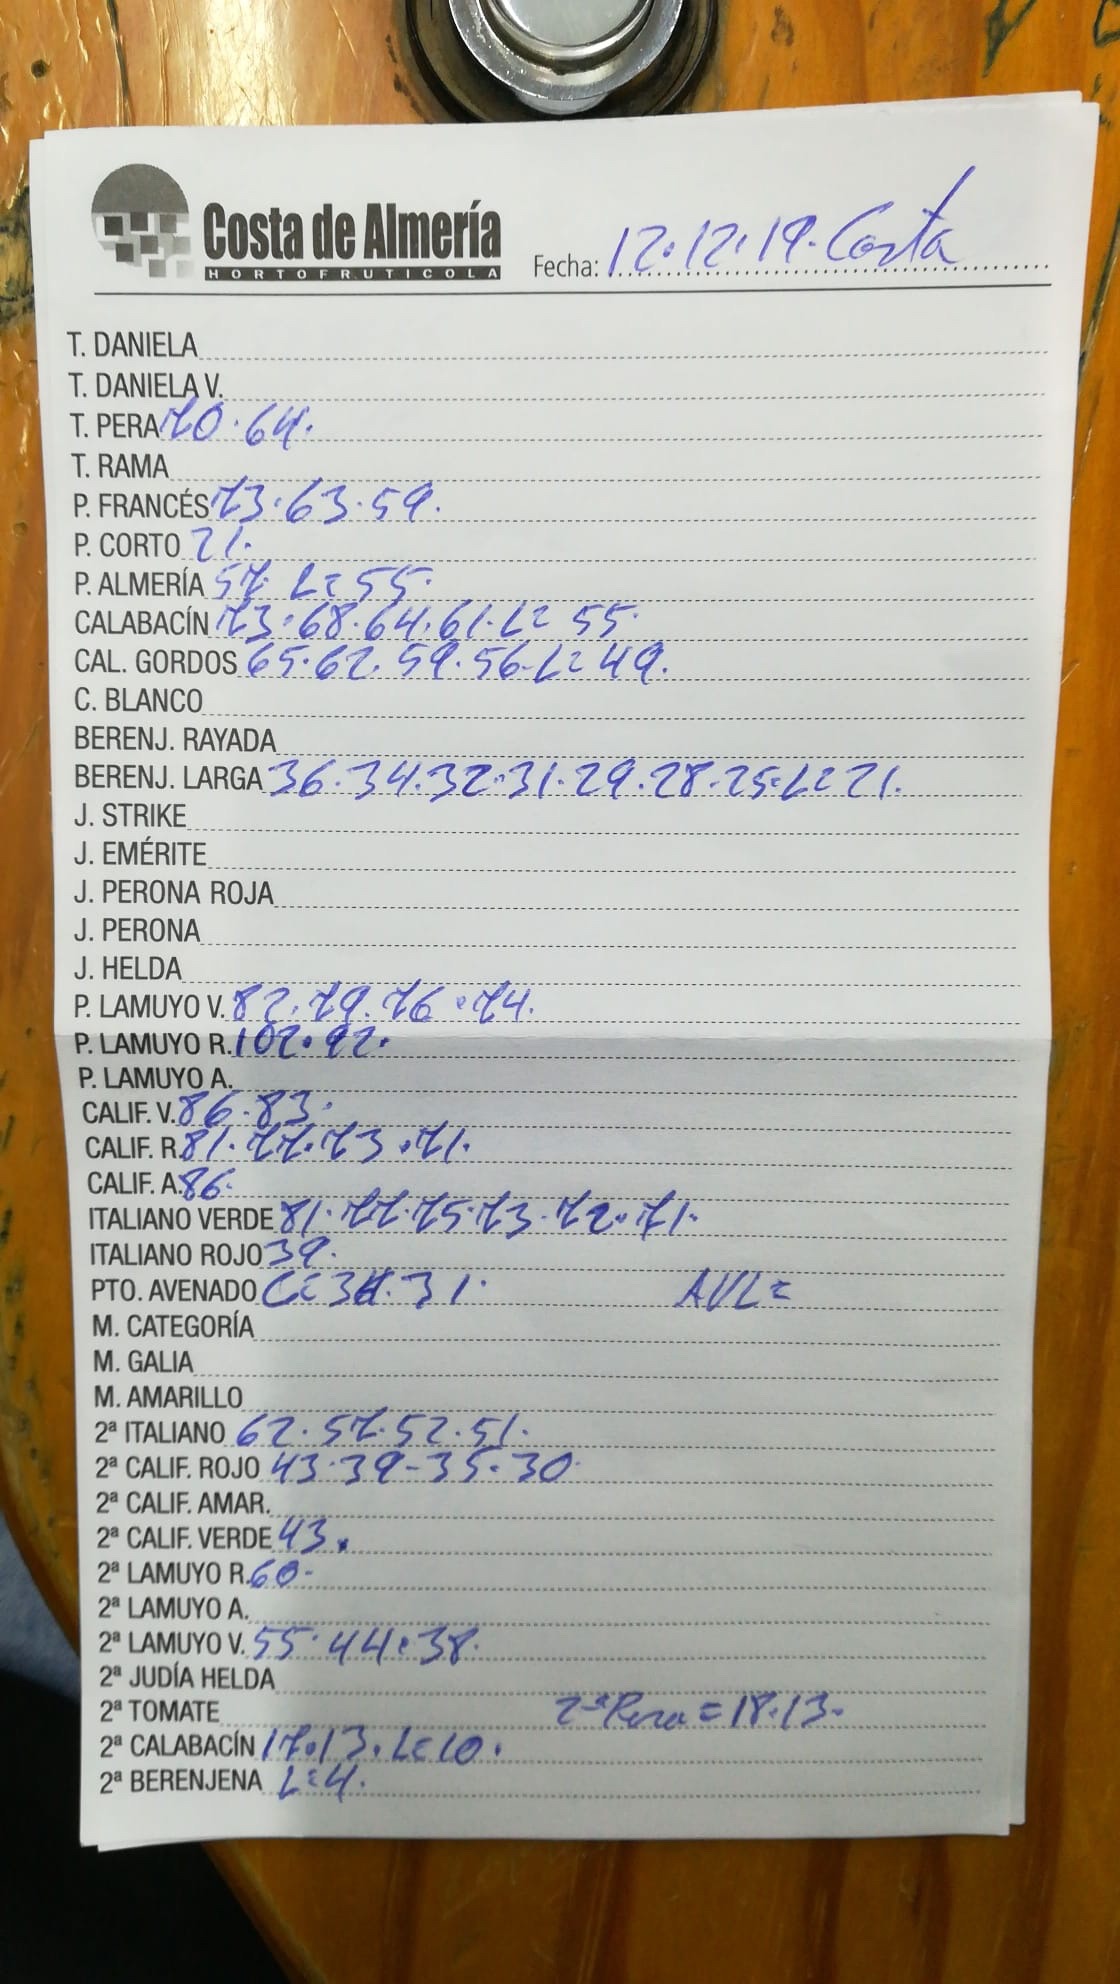 Costa de Almería
HORTOFRUTICOLA
Fecha: 12.12.19. Costa
T. DANIELA
T. DANIELA V.
T. PERA 70.64.
T. RAMA
P. FRANCÉS 73.63.59.
P. CORTO 21.
P. ALMERÍA 57. L= 55.
CALABACÍN 73.68.64.61.L= 55.
CAL. GORDOS 65.62.59.56.L= 49.
C. BLANCO
BERENJ. RAYADA
BERENJ. LARGA 36.34.32.31.29.28.25.L= 21.
J. STRIKE
J. EMÉRITE
J. PERONA ROJA
J. PERONA
J. HELDA
P. LAMUYO V. 82.79.76.74.
P. LAMUYO R. 102.92.
P. LAMUYO A.
CALIF. V. 86.83.
CALIF. R. 81.77.73.71.
CALIF. A. 86.
ITALIANO VERDE 81.77.75.73.72.71.
ITALIANO ROJO 39.
PTO. AVENADO C= 31. AVL=
M. CATEGORÍA
M. GALIA
M. AMARILLO
2ª ITALIANO 62.57.52.51.
2ª CALIF. ROJO 43.39-35.30
2ª CALIF. AMAR.
2ª CALIF. VERDE 43.
2ª LAMUYO R. 60-
2ª LAMUYO A.
2ª LAMUYO V. 55.44.38.
2ª JUDÍA HELDA
2ª TOMATE 2ª Pera = 18.13.
2ª CALABACÍN 17.13.L= 10.
2ª BERENJENA L= 4.